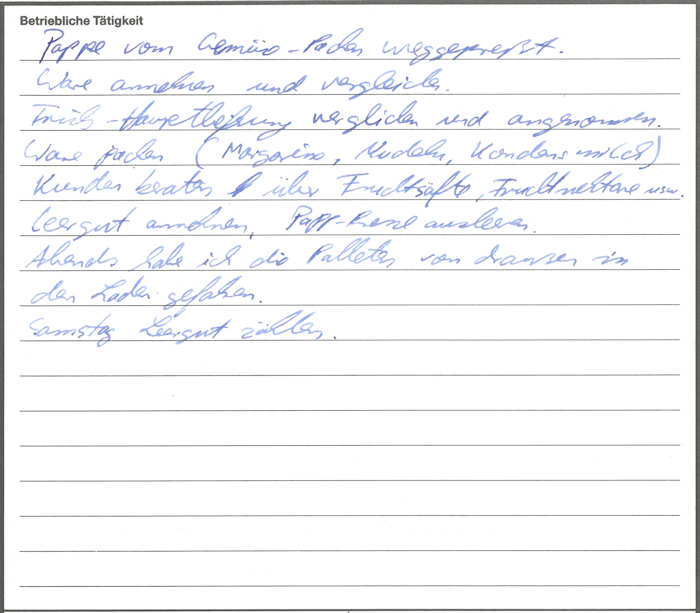 Betriebliche Tätigkeit
Pappe vom Gemüse-Packen weggepreßt.
Ware annehmen und vergleichen.
Frisch-Hauptlieferung verglichen und angenommen.
Ware packen (Margarine, Nudeln, Kondensmilch)
Kunden beraten über Fruchtsäfte, Fruchtnektare usw.
Leergut annehmen, Papp-Presse ausleeren.
Abends habe ich die Palleten von draussen in
den Laden gefahren.
Samstag Leergut zählen.